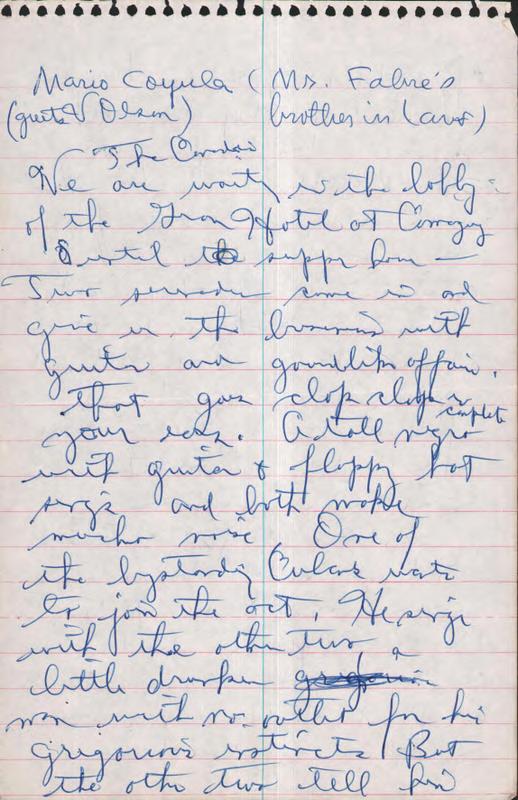 Mario Coyula (Mr. Fabre's
(guitar Olsen) brother in law)
The Comedia
We are waiting in the lobby
of the Gran Hotel at Camaguey
until the supper hour —
Two serenaders come in and
give us the business with
guitar and gourdlike affair,
that goes clop clop in
your ears. A tall negro complete
with guitar & floppy hat
sings and both make
mucho noise. One of
the bystanding Cubans wants
to join the act. He sings
with the other two, a
little drunken
man with no outlet for his
gregarious instincts. But
the other two tell him